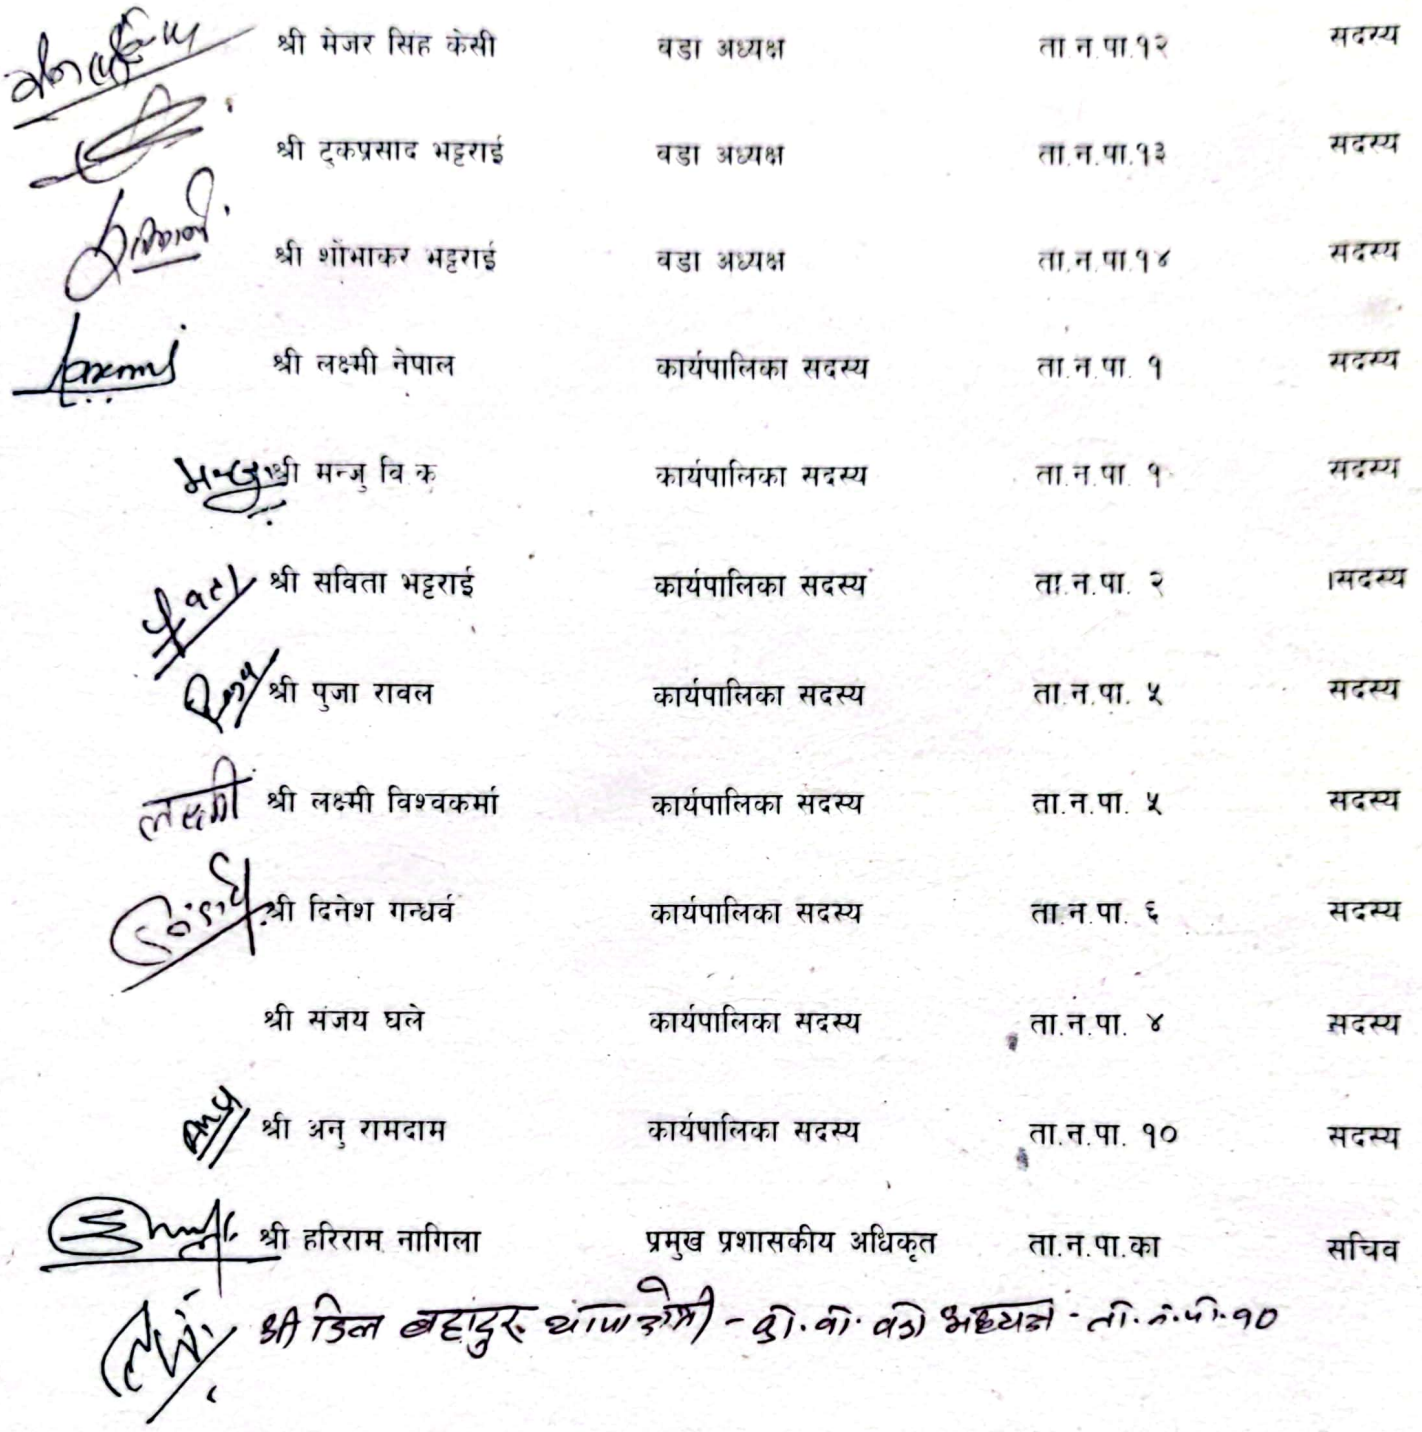 श्री मेजर सिंह केसी वडा अध्यक्ष ता.न.पा.१२ सदस्य
श्री टुकप्रसाद भट्टराई वडा अध्यक्ष ता.न.पा.१३ सदस्य
श्री शोभाकर भट्टराई वडा अध्यक्ष ता.न.पा.१४ सदस्य
Laxmi श्री लक्ष्मी नेपाल कार्यपालिका सदस्य ता.न.पा. १ सदस्य
मन्जु श्री मन्जु वि क कार्यपालिका सदस्य ता.न.पा. १ सदस्य
श्री सविता भट्टराई कार्यपालिका सदस्य ता.न.पा. २ ।सदस्य
श्री पुजा रावल कार्यपालिका सदस्य ता.न.पा. ५ सदस्य
लक्ष्मी श्री लक्ष्मी विश्वकर्मा कार्यपालिका सदस्य ता.न.पा. ५ सदस्य
श्री दिनेश गन्धर्व कार्यपालिका सदस्य ता.न.पा. ६ सदस्य
श्री संजय घले कार्यपालिका सदस्य ता.न.पा. ४ सदस्य
Anu श्री अनु रामदाम कार्यपालिका सदस्य ता.न.पा. १० सदस्य
श्री हरिराम नागिला प्रमुख प्रशासकीय अधिकृत ता.न.पा.का सचिव
श्री डिल बहादुर थापा - का. वा. वडा अध्यक्ष - ता.न.पा.१०